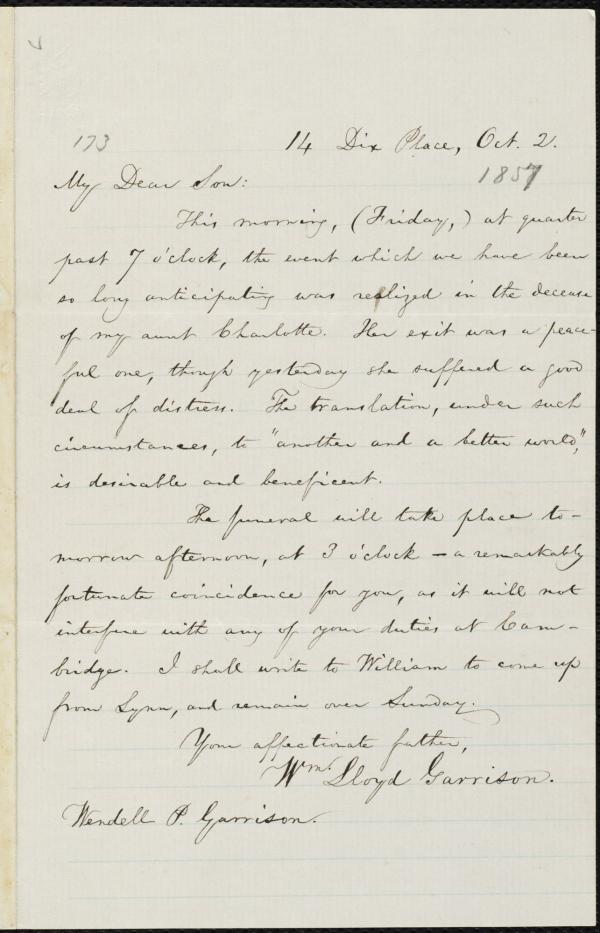 173
14 Dix Place, Oct. 2.
1857
My Dear Son:
This morning, (Friday,) at quarter
past 7 o'clock, the event which we have been
so long anticipating was realized in the decease
of my aunt Charlotte. Her exit was a peace-
ful one, though yesterday she suffered a good
deal of distress. The translation, under such
circumstances, to "another and a better world,"
is desirable and beneficent.
The funeral will take place to-
morrow afternoon, at 3 o'clock — a remarkably
fortunate coincidence for you, as it will not
interfere with any of your duties at Cam-
bridge. I shall write to William to come up
from Lynn, and remain over Sunday.
Your affectionate father,
Wm. Lloyd Garrison.
Wendell P. Garrison.